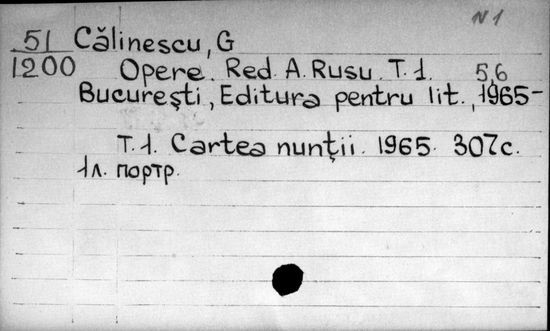 N 1
51 Călinescu, G
1200 Opere. Red. A. Rusu. T. 1. 5,6
Bucureşti, Editura pentru lit., 1965-
T. 1. Cartea nunţii. 1965. 307с.
1л. портр.